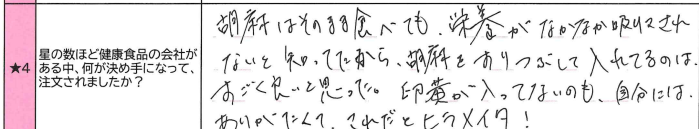 ★4
星の数ほど健康食品の会社が
ある中、何が決め手になって、
注文されましたか？
胡麻はそのまま食べても、栄養がなかなか吸収され
ないと知ってたから、胡麻をすりつぶして入れてるのは、
すごく良いと思った。 印黄が入ってないのも、自分には
ありがたくて、これだとヒラメイタ！